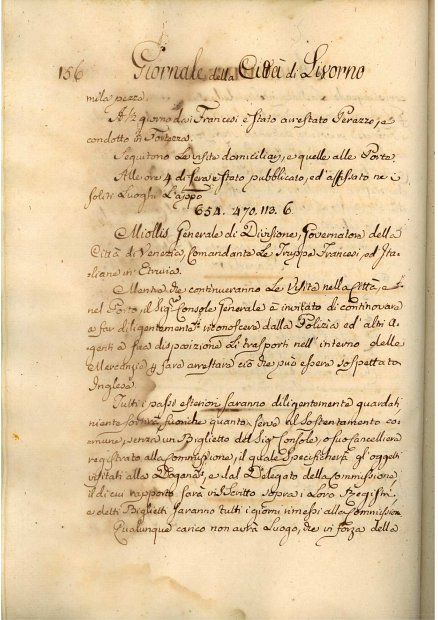 156 Giornale della Città di Livorno
mila pezze.
A ½ giorno dai Francesi è stato arrestato Perazzo, e
condotto in Fortezza.
Seguitono le visite domiciliari, e quelle alle Porte.
Alle ore 4 di sera è stato pubblicato, ed affissato ne i
soliti Luoghi L'appo
654. 470. 113. 6.
Miollis Generale di Divisione, Governatore della
Città di Venezia, Comandante Le Truppe Francesi, ed Ita
liane in Etruria.
Mentre che continueranno Le Visite nella Città, e
nel Porto, il Sigr. Console Generale è invitato di continovare
a far diligentemente riconoscere dalla Polizia ed altri A
genti a sua disposizione Li trasporti nell' interno delle
Mercanzie p farà arrestare ciò che può essere sospettato
Inglese
Tutti i passi esteriori saranno diligentemente guardati,
niente sortirà fuorichè quanto serve al Sostentamento co
mune, senza un Biglietto del Sigr. Console, o suo Cancelliere
registrato alla Commissione, il quale specificherà gl' oggetti
visitati alla Dogana, e dal Delegato della Commissione
il di cui rapporto sarà riscritto sopra i Loro Registri,
e detti Biglietti saranno tutti i giorni rimessi alla Commissione
Qualunque carico non avrà Luogo, che in forza della